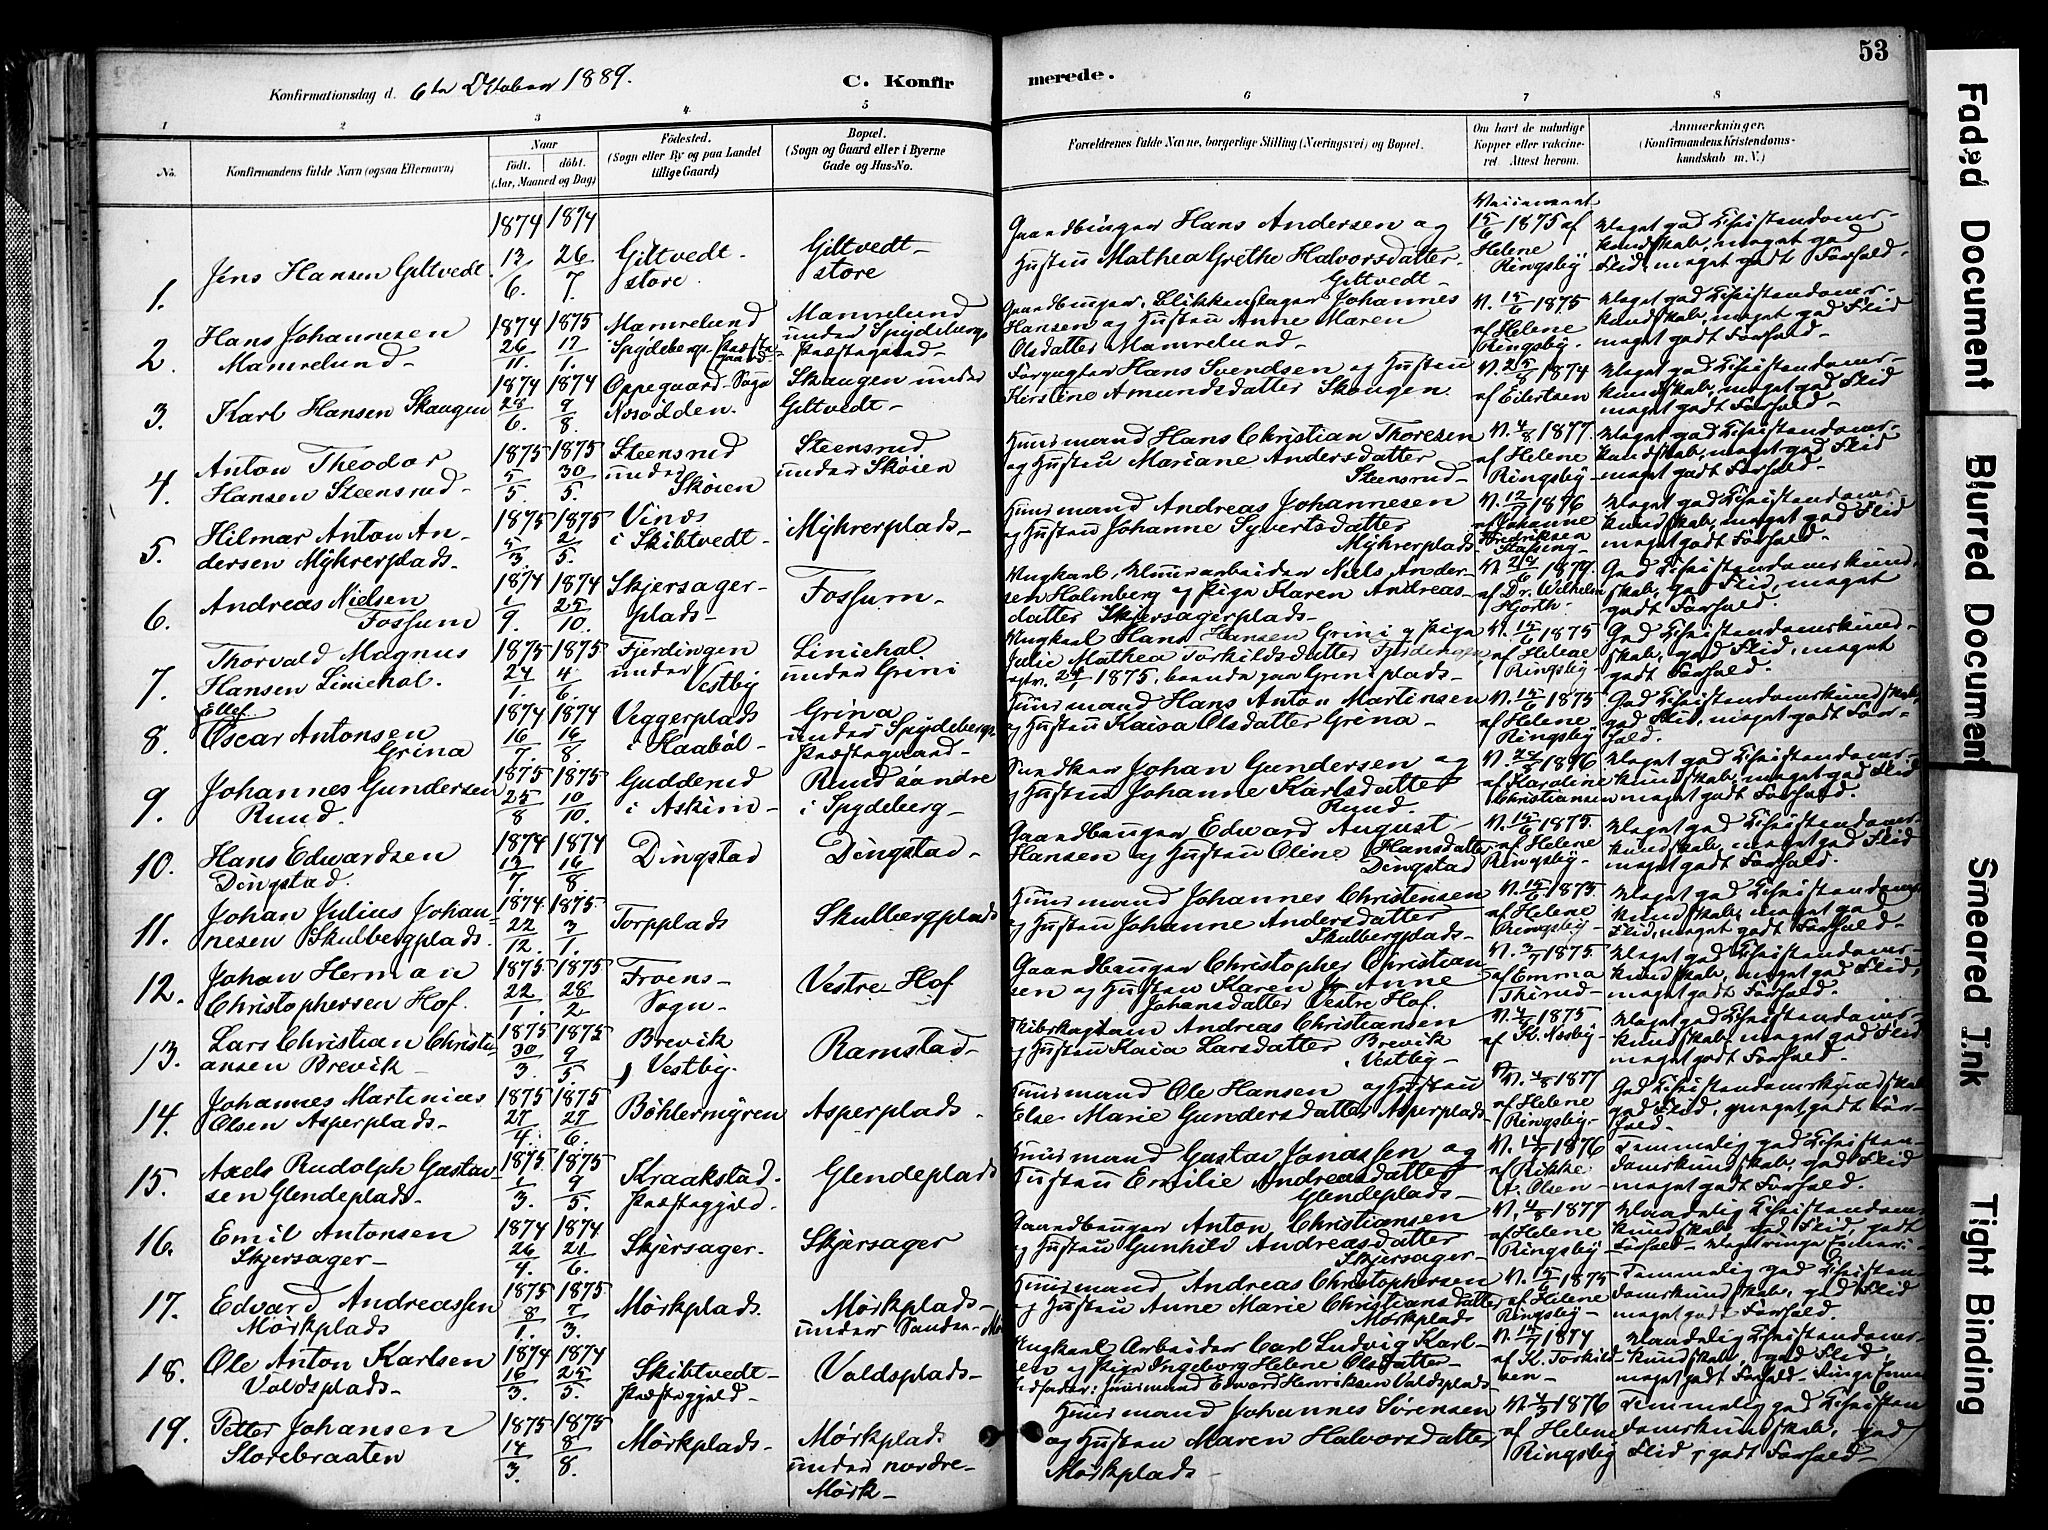 53
Konfirmationsdag d. 6te Oktober 1889.
C. Konfirmerede.
1 2 3 4 5 6 7 8
No.
Konfirmandens fulde Navn (ogsaa Efternavn)
Naar
födt. döbt.
(Aar, Maaned og Dag)
Födested.
(Sogn eller By og paa Landet tillige Gaard)
Bopæl.
(Sogn og Gaard eller i Byerne Gade og Hus-No.
Forældrenes fulde Navne, borgerlige Stilling (Næringsvei) og Bopæl.
Om havt de naturlige Kopper eller vaccineret. Attest herom.
Anmærkninger.
(Konfirmandens Kristendomskundskab m. V.)
1. Jens Hansen Giltvedt. 1874 13/6. 1874 26/7. Giltvedt store Giltvedt store Gaardbruger Hans Andersen og Hustru Mathea Grethe Halvorsdatter Giltvedt - 15/6 1875 af Helene Ringsby Meget god Christendomskundskab, meget god Flid, meget godt Forhold.
2. Hans Johannesen Mamrelund - 1874 26/11. 1875 17/1. Mamrelund Spydebergs Præstegaard - Mamrelund under Spydebergs Præstegaard - Gaardbruger, Blikkenslager Johannes Hansen og Hustru Anne Maren Olsdatter Mamrelund - V. 15/6 1875 af Helene Ringsby. Meget god Christendomskundskab, meget god Flid meget godt Forhold -
3. Karl Hansen Skaugen 1874 28/6. 1874 9/8. Oppegaard Sogn Nesodden. Skaugen under Giltvedt - Forpagter Hans Svendsen og Hustru Kirstine Amundsdatter Skougen. V. 25/8 1874 af Eilertsen Meget god Christendomskundskab, meget god Flid meget godt Forhold -
4. Anton Theodor Hansen Steensrud - 1875 5/5. 1875 30/5. Steensrud under Skøien Steensrud under Skøien Husmand Hans Christian Thoresen og Hustru Mariane Andersdatter Steensrud - V. 4/8 1877 af Helene Ringsby - Meget god Christendomskundskab, meget god Flid meget godt Forhold -
5. Hilmar Anton Andersen Myhrerplads - 1875 5/3. 1875 2/5. Vines i Skibtvedt - Myhrerplads - Husmand Andreas Johannesen og Hustru Johanne Syvertsdatter Myhrerplads - V. 12/7 1876 af Johanne Fredriksen Meget god Christendomskundskab, meget god Flid meget godt Forhold -
6. Andreas Nielsen Fossum 1874 1/9. 1874 25/10. Skjersagerplads - Fossum - Ungkarl, Murarbeider Niels Andersen Holmberg og Pige Karen Andreasdatter Skjersagerplads - af Dr. Wilhelm Hjorth - God Christendomskundskab, god Flid, meget godt Forhold.
7. Thorvald Magnus Hansen Liniehol. 1875 24/1. 1875 4/6. Fjerdingen under Vestby Liniehol under Grini Ungkarl Hans Hansen Grini og Pige Julie Mathea Torkildsdatter Fjerdingen V. 15/6 1875 af Helene Ringsby - God Christendomskundskab, god Flid, meget godt Forhold.
8. Ellef Oscar Antonsen Grina 1874 16/7. 1874 16/8. Veggerplads i Haabøl - Grina under Spydebergs Præstegaard - Husmand Hans Anton Martinsen og Hustru Kaisa Olsdatter Grena - V. 15/6 1875 af Helene Ringsby God Christendomskundskab, god Flid, meget godt Forhold.
9. Johannes Gundersen Ruud. 1875 25/8 1875 10/10. Gudderud i Askim - Ruud söndre i Spydeberg - Johan Gundersen og Hustru Johanne Karlsdatter Ruud. V. 24/8 1876 af Karoline Christiansen Meget god Christendomskundskab, meget god Flid meget godt Forhold.
10. Hans Edwardsen Dingstad. 1874 13/7. 1874 16/8. Dingstad Dingstad - Gaardbruger Edward August Hansen og Hustru Oline Hansdatter Dingstad V. 15/6 1875. af Helene Ringsby - Meget god Christendomskundskab, meget god Flid meget godt Forhold.
11. Johan Julius Johannesen Skulbergplads - 1874. 22/12. 1875 3/1. Torpplads Skulbergplads Husmand Johannes Christensen og Hustru Johanne Andersdatter Skulbergplads - V. 15/6 1875. af Helene Ringsby - Meget god Christendomskundskab, meget god Flid, meget godt Forhold -
12. Johan Herman Christophersen Hof. 1875. 22/1. 1875 28/2 Froens Sogn - Vestre Hof Gaardbruger Christopher Christiansen og Hustru Karen Anne Johansdatter Vestre Hof. V. 3/7 1875. af Emma Thirud - Meget god Christendomskundskab, meget god Flid, meget godt Forhold.
13. Lars Christian Christiansen Brevik - 1875 30/3. 1875 9/5. Brevik, Vestby. Ramstad - Andreas Christiansen og Hustru Kaia Larsdatter Brevik, Vestby - 1875 af K. Næsby - Meget god Christendomskundskab, meget god Flid meget godt Forhold.
14. Johannes Martinius Olsen Asperplads - 1875 27/4. 1875 27/6. Böhlermyren Asperplads - Husmand Ole Hansen og Hustru Else Marie Gundersdatter Asperplads V. 4/8 1877 af Helene Ringsby - God Christendomskundskab, god Flid, meget godt Forhold.
15. Axels Rudolph Gustavsen Glendeplads - 1875. 1/3. 1875. 9/5. Kraakstad Præstegjeld. Glendeplads Husmand Gustav Jonassen og Hustru Emilie Andreasdatter Glendeplads - 1876 af Rikke A. Olsen - Temmelig god Christendomskundskab, god Flid meget godt Forhold.
16. Emil Antonsen Skjersager - 1874 26/4. 1874. 21/6. Skjersager. Skjersager Gaardbruger Anton Christiansen og Hustru Gunhild Andreasdatter Skjersager - V. 4/8 1877 af Helene Ringsby Maadelig Christendomskundskab og Flid, godt Forhold -
17. Edvard Andreassen Mørkplads 1875 8/1. 1875 7/3. Mørkplads. Mørkplads - under Sandre - Husmand Andreas Christophersen og Hustru Anne Marie Christiansdatter Mørkplads V. 15/6 1875 af Helene Ringsby - Temmelig god Christendomskundskab, god Flid meget godt Forhold.
18. Ole Anton Karlsen Valdsplads - 1874 16/3. 1874 25/5. Skibtvedt - Præstegjeld - Valdsplads - Ungkarl Arbeider Carl Ludvig Karlsen og Pige Ingeborg Helene Olsdatter - Husmand Edward Henriksen Valdsplads 1874 af K. Torkildsen - Maadelig Christendomskundskab, god Flid, meget godt Forhold -
19. Petter Johansen Storebraaten 1875 14/3. 1875 8/8. Mørkplads - Mørkplads under nordre Mørk - Husmand Johannes Sørensen og Hustru Maren Halvorsdatter Mørkplads - 1876 af Helene Ringsby Temmelig god Christendomskundskab, god Flid, godt Forhold -
Faded Document
Blurred Document
Smeared Ink
Tight Binding